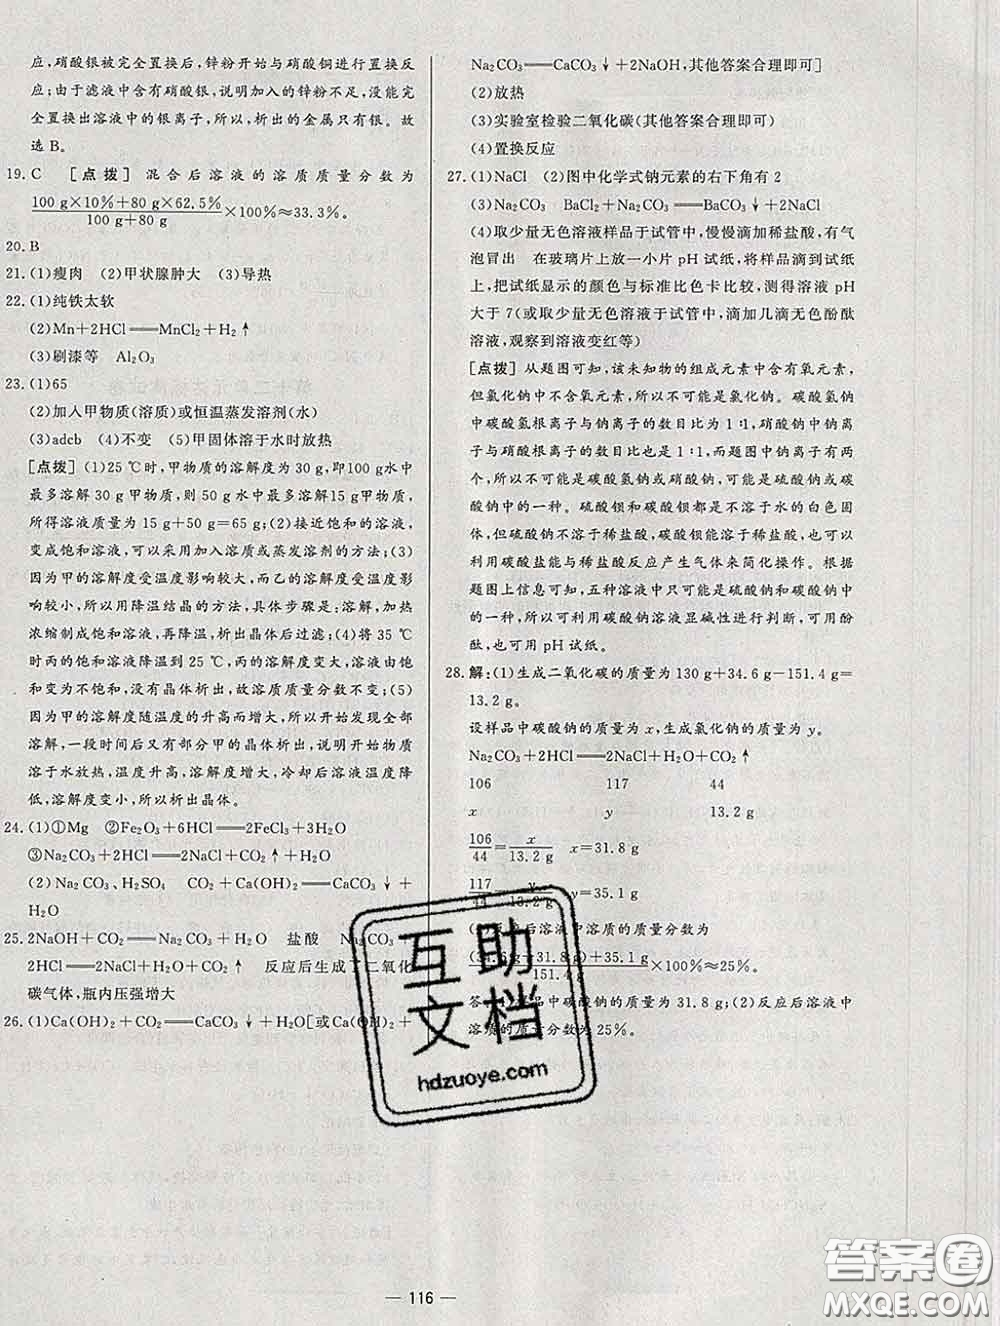 应,硝酸银被完全置换后,锌粉开始与硝酸铜进行置换反
应;由于滤液中含有硝酸银,说明加入的锌粉不足,没能完
全置换出溶液中的银离子,所以,析出的金属只有银。故
选 B。
19. C [点拨] 混合后溶液的溶质质量分数为
100 g×10%+80 g×62.5%/100 g+80 g ×100%≈33.3%。
20. B
21. (1)瘦肉 (2)甲状腺肿大 (3)导热
22. (1)纯铁太软
(2)Mn+2HCl══MnCl₂+H₂↑
(3)刷漆等 Al₂O₃
23. (1)65
(2)加入甲物质(溶质)或恒温蒸发溶剂(水)
(3)adcb (4)不变 (5)甲固体溶于水时放热
[点拨] (1)25 ℃时,甲物质的溶解度为 30 g,即100 g水中
最多溶解 30 g 甲物质,则 50 g 水中最多溶解15 g甲物质,
所得溶液质量为 15 g+50 g=65 g;(2)接近饱和的溶液,
变成饱和溶液,可以采用加入溶质或蒸发溶剂的方法;(3)
因为甲的溶解度受温度影响较大,而乙的溶解度受温度影
响小,所以用降温结晶的方法,具体步骤是:溶解,加热
浓缩制成饱和溶液,再降温,析出晶体后过滤;(4)将 35 ℃
时丙的饱和溶液降温到 25 ℃,丙的溶解度变大,溶液由饱
和变为不饱和,没有晶体析出,故溶质质量分数不变;(5)
因为甲的溶解度随温度的升高而增大,所以开始发现全部
溶解,一段时间后又有部分甲的晶体析出,说明开始物质
溶于水放热,温度升高,溶解度增大,冷却后溶液温度降
低,溶解度变小,所以析出晶体。
24. (1)①Mg ②Fe₂O₃+6HCl══2FeCl₃+3H₂O
③Na₂CO₃+2HCl══2NaCl+CO₂↑+H₂O
(2)Na₂CO₃、H₂SO₄ CO₂+Ca(OH)₂══CaCO₃↓+
H₂O
25. 2NaOH+CO₂══Na₂CO₃+H₂O 盐酸 Na₂CO₃
2HCl══2NaCl+H₂O+CO₂↑ 反应后生成了二氧化
碳气体,瓶内压强增大
26. (1)Ca(OH)₂+CO₂══CaCO₃↓+H₂O[或Ca(OH)₂+
Na₂CO₃══CaCO₃↓+2NaOH,其他答案合理即可]
(2)放热
(3)实验室检验二氧化碳(其他答案合理即可)
(4)置换反应
27. (1)NaCl (2)图中化学式钠元素的右下角有 2
(3)Na₂CO₃ BaCl₂+Na₂CO₃══BaCO₃↓+2NaCl
(4)取少量无色溶液样品于试管中,慢慢滴加稀盐酸,有气
泡冒出 在玻璃片上放一小片 pH 试纸,将样品滴到试纸
上,把试纸显示的颜色与标准比色卡比较,测得溶液 pH
大于 7(或取少量无色溶液于试管中,滴加几滴无色酚酞
溶液,观察到溶液变红等)
[点拨] 从题图可知,该未知物的组成元素中含有氧元素,
但氯化钠中不含氧元素,所以不可能是氯化钠。碳酸氢钠
中碳酸氢根离子与钠离子的数目比为 1∶1,硝酸钠中钠离
子与硝酸根离子的数目比为 1∶1,而题图中钠离子有两
个,所以不可能是碳酸氢钠或硝酸钠,可能是硫酸钠或碳
酸钠中的一种。硫酸钡和碳酸钡都是不溶于水的白色固
体,但硫酸钡不溶于稀盐酸,碳酸钡能溶于稀盐酸,也可以
利用碳酸盐能与稀盐酸反应产生气体来简化操作。根据
题图上信息可知,五种溶液中只可能是硫酸钠和碳酸钠中
的一种,所以可利用碳酸钠溶液显碱性进行判断,可用酚
酞,也可用 pH 试纸。
28. 解:(1)生成二氧化碳的质量为 130 g+34.6 g−151.4 g=
13.2 g。
设样品中碳酸钠的质量为 x,生成氯化钠的质量为 y。
Na₂CO₃+2HCl══2NaCl+H₂O+CO₂↑
106 117 44
x y 13.2 g
106/44=x/13.2 g x=31.8 g
117/44=y/13.2 g y=35.1 g
(2)反应后溶液中溶质的质量分数为
(34.6 g−31.8 g)+35.1 g/151.4 g ×100%≈25%。
答:(1)样品中碳酸钠的质量为 31.8 g;(2)反应后溶液中
溶质的质量分数为 25%。
互助
文档
hdzuoye.com
— 116 —
答案卷
MXQE.COM